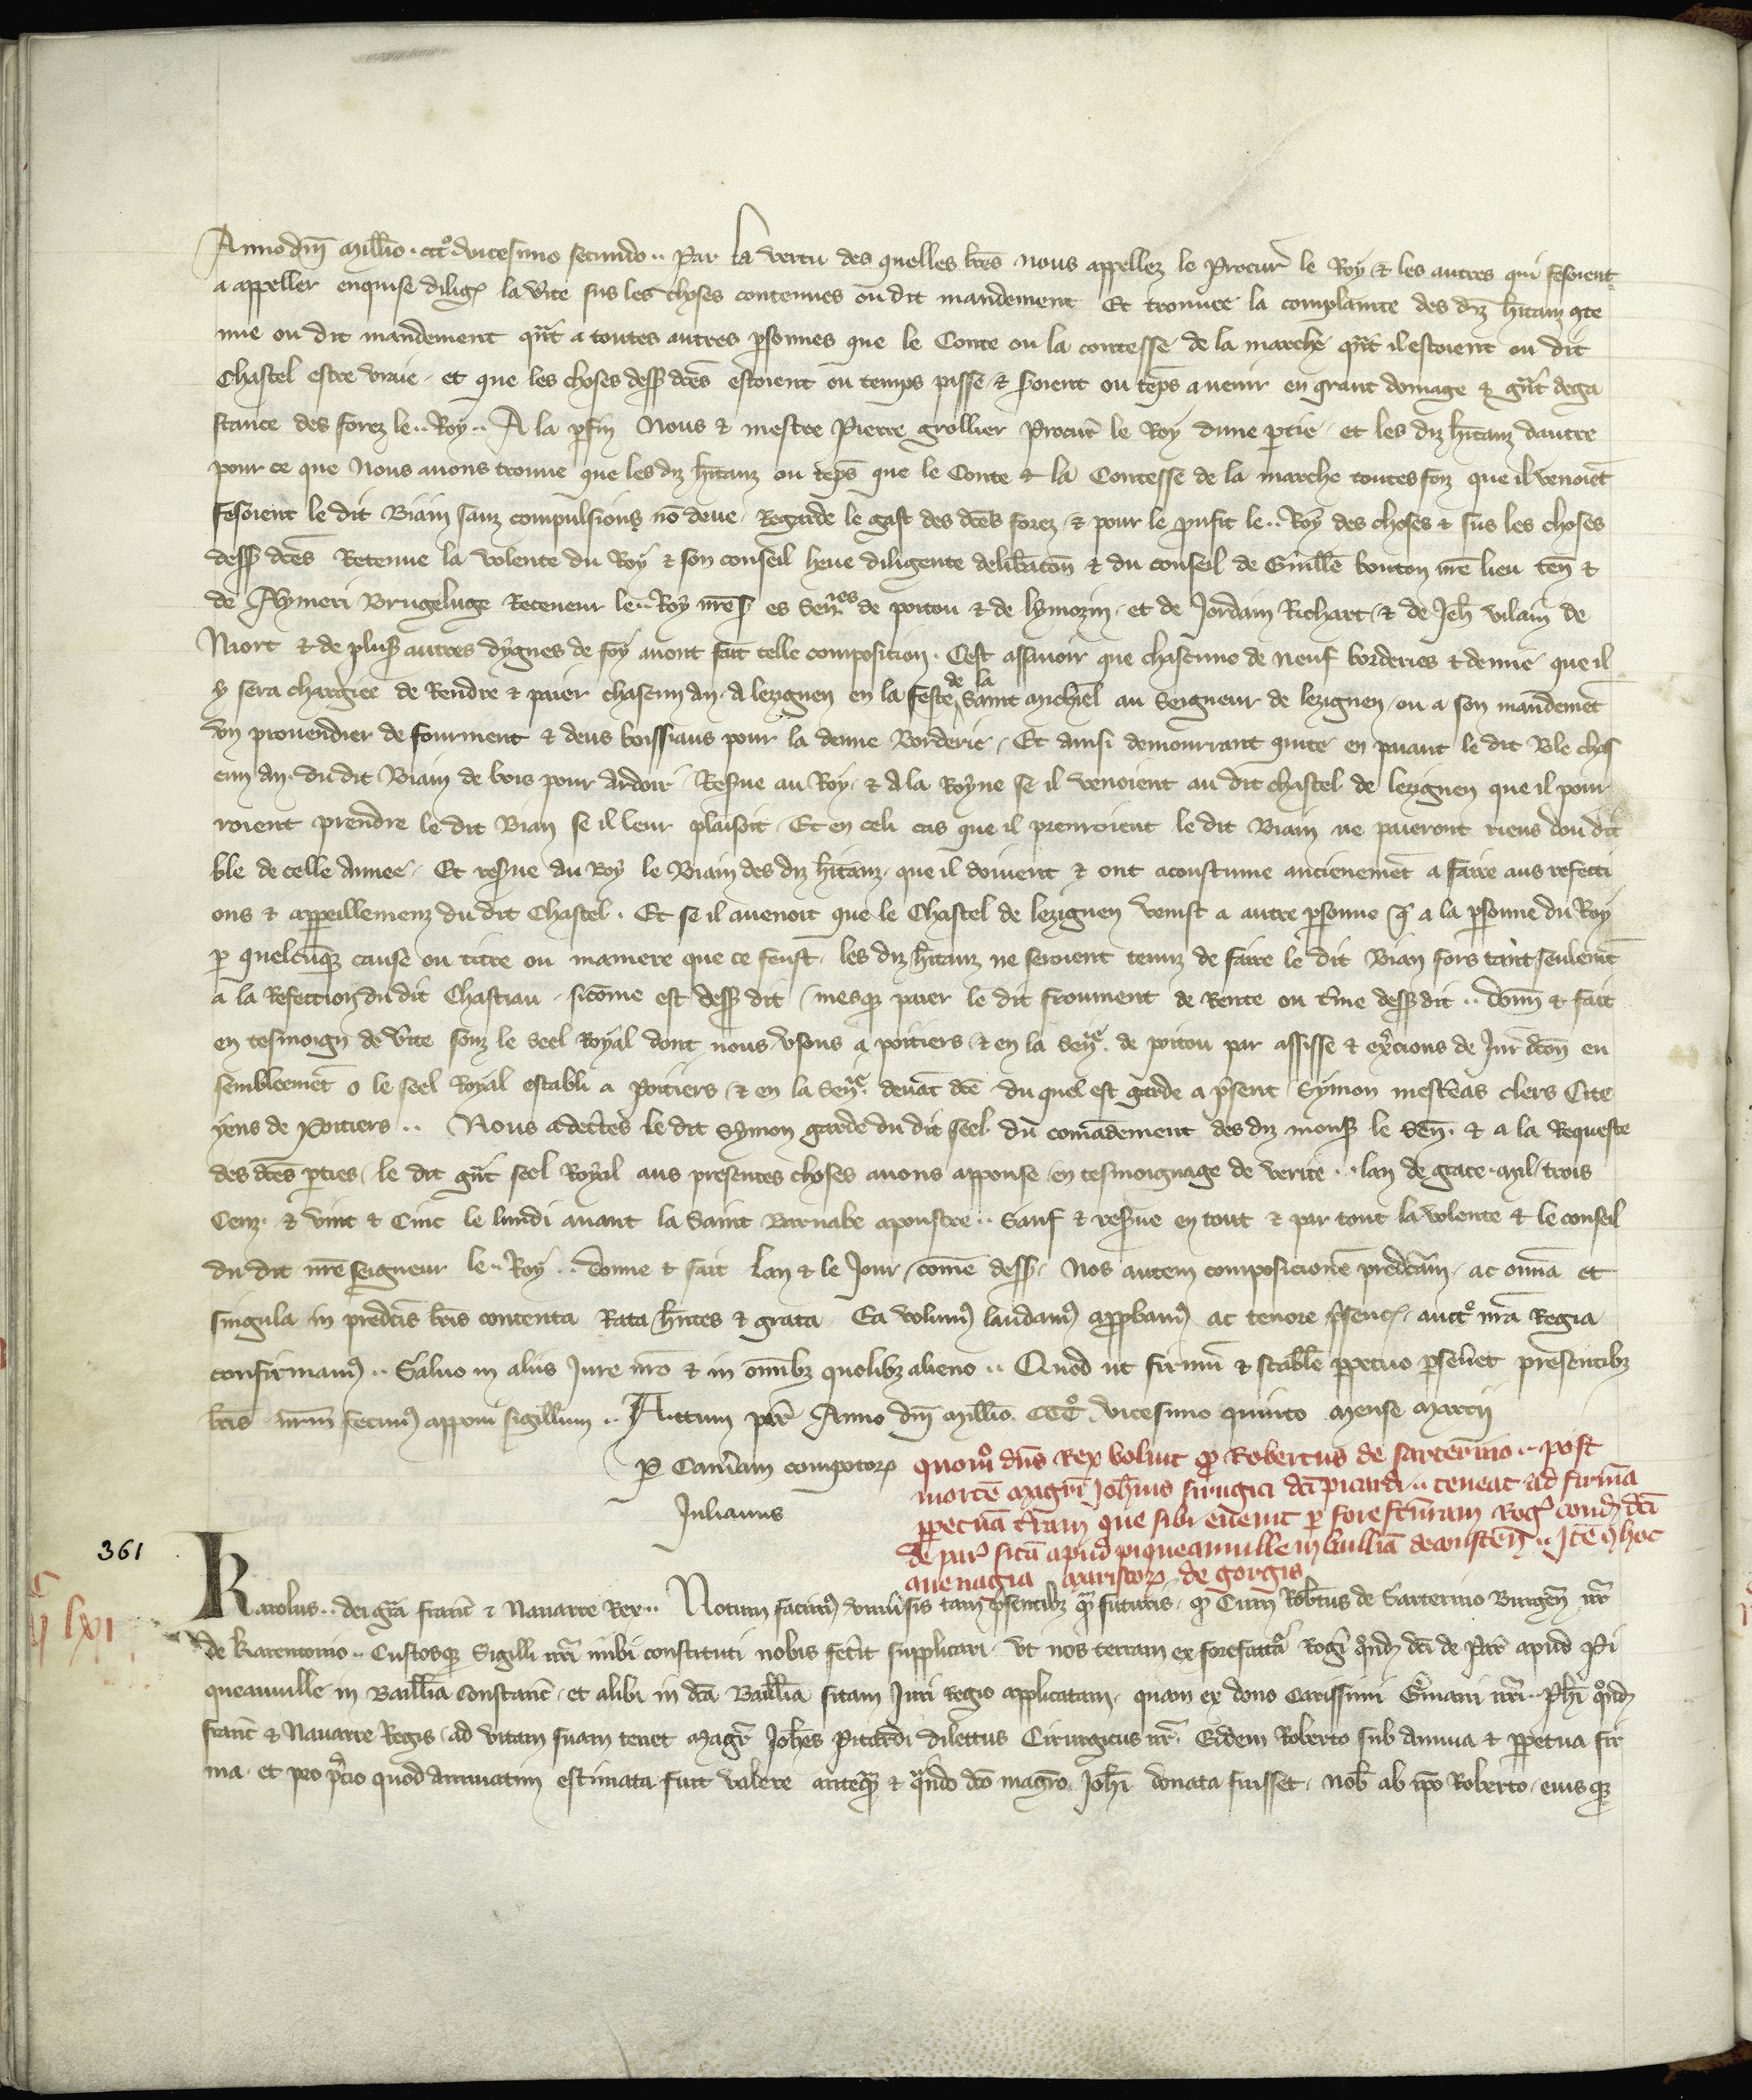 Anno dm̄ mill̄io. ccc.º vicesimo secundo .. Par la vertu des quelles l̄res nous appellez le Procur̄ le Roy & les autres qui fesoient
a appeller enquise diligē la v̄ite sus les choses contenues ou dit mandement Et trouuee la complainte des diz h̄itanz ꝯte
nue ou dit mandement qn̄t a toutes autres ꝑsonnes que le Conte ou la contesse de la marche qn̄t il estoient ou dit
Chastel estre vraie . et que les choses dess dc̄es estoient ou temps passe & s̄oient ou tēps a uenir en grant domage & gn̄t dega
stance des forez le .. Roy .. A la ꝑfin Nous & mestre Pierre grollier Procur̄ le Roy dune ꝑtie . et les diz h̄itanz dautre
pour ce que Nous auons trouue que les diz h̄itanz ou tēps que le Conte & la Contesse de la marche toutesfoiz que il venoiēt
fesoient le dit Biain sanz compulsions nō deue . Regarde le gast des dc̄es forez . & pour le ꝓufit le .. Roy des choses & sus les choses
dess dc̄es Retenue la volente du Roy & son conseil heue diligente delib̄acōn & du conseil de Guill̄e bouton nr̄e lieu ten̄ &
de Aymeri Brugeluge Receueur le .. Roy nr̄e s es Sen̄es de poitou & de lymozin . et de Jordain Richart . & de Jeh̄ vilain de
Niort & de plus autres dygnes de foy auont fait telle composicion . Cest assauoir que chascune de neuf borderies & demie que il
y sera chargiee de Rendre & paier chascun an . a lezignen en la feste de la Saint michiel au Seigneur de lezignen . ou a son mandemēt
vn prouendier de fourment & deus boissiaus pour la demie Borderie . Et ainsi demourrant quite en paiant le dit Ble chas
cun an . du dit Biain de bois pour ardoir . Res̄ue au Roy . & a la Royne se il venoient au dit chastel de lezignen que il pour
roient prendre le dit Bian se il leur plaisoit . Et en celi cas que il prenroient le dit Biain ne paieront riens dou dit
ble de celle annee . Et res̄ue au Roy le Biain des diz h̄itanz . que il doiuent & ont acoustume ancienemēt a faire aus refecti
ons & appeillemenz du dit Chastel . Et se il auenoit que le Chastel de lezignen venist a autre ꝑsonne q̄ a la ꝑsonne du Roy
ꝑ quelcūqꝫ cause ou titre ou maniere que ce feust . les diz h̄itanz ne seroient tenuz de faire le dit Bian fors tant seulemt̄
a la Refection du dit Chastiau . sicōme est dess dit . mesqꝫ paier le dit froument de Rente ou t̄me dess dit .. donn̄ & fait
en tesmoign de v̄ite souz le seel Royal dont nous vsons a poitiers & en la Sen̄ . de poitou par assisse & ex̄cions de Jur̄ dcōn en
sembleemēt o le seel Royal establi a Poitiers . & en la Sen̄ . deuāt dc̄e du quel est garde a p̄sent Symon clers Cite
yens de Poitiers .. Nous adec̄tes le dit Symon garde du dit seel . du comādement des diz mons le Sen̄ . & a la Requeste
des dc̄es ꝑties . le dit gn̄t seel Royal aus presentes choses auons appouse en tesmoignage de verite .. lan de grace . mil trois
Cenz . & vint & Cinc le lundi auant la Saint Barnabe apoustre .. Sauf & res̄ue en tout & par tout la volente & le conseil
du dit nr̄e seigneur le .. Roy .. donne & fait Lan & le Jour . cōme dess . Nos autem composicionē predc̄am . ac om̄ia et
singula in predc̄is l̄ris contenta Rata h̄ntes & grata Ea volum laudam app̄bam ac tenore p̄senc . auct.º nr̄a Regia
confirmam .. Saluo in aliis Jure nr̄o & in om̄ibꝫ quolibꝫ alieno .. Quod ut firmū & stabile ꝑpetuo ꝑseu̅et presentibꝫ
l̄ris nr̄m fecim apponi sigillum .. Actum par̄ Anno dm̄ mill̄io CCC.º vicesimo quinto mense marcij
P Cam̄am compotoꝝ
Julianus
quom.º dn̄s Rex voluit qꝫ Robertus de sarterino .. post
mortē magr̄i Joh̄nis sirugici dc̄i picardi .. teneat ad firmā
ꝑpetuā t̄ram que sibi euenit ꝑ forefc̄uram Rog̅ cond̄ dc̄i
de par̄ sitā apud piqueauuille in bailliā de constēn̄ .. Itē hoc
auenagia maristoꝝ de gorgis
361
Karolus .. dei gr̄a franc̄ & Nauarre Rex .. Notum facim vniu̅sis tam p̄sentibꝫ qꝫ futuris . qꝫ Cum Rob̄tus de Sarterino Burgēn nr̄
de Karentonio .. Custosqꝫ Sigilli nr̄i inibi constituti nobis fec̄it supplicari . vt nos terram ex forefactura Rog̅i qōnd̄ dc̄i de Par̄ apud Pi
queauuille in Baill̄ia Constanc̄ . et alibi in dc̄a Baill̄ia sitam Juri regio applicatam . quam ex dono Carissimi G̅mani nr̄i .. Ph̄i qōnd̄
franc̄ & Nauarre Regis . ad vitam suam tenet Mag̅r Joh̄es Pitardi dilectus Cirurgicus nr̄ . Eidem Roberto sub annua & ꝑpetua fir
ma . et pro p̄cio quod annuatim estimata fuit valere anteqꝫ & qn̄do dc̄o mag̅ro . Joh̄i donata fuisset . nob̄ ab ip̄o Roberto . eiusqꝫ